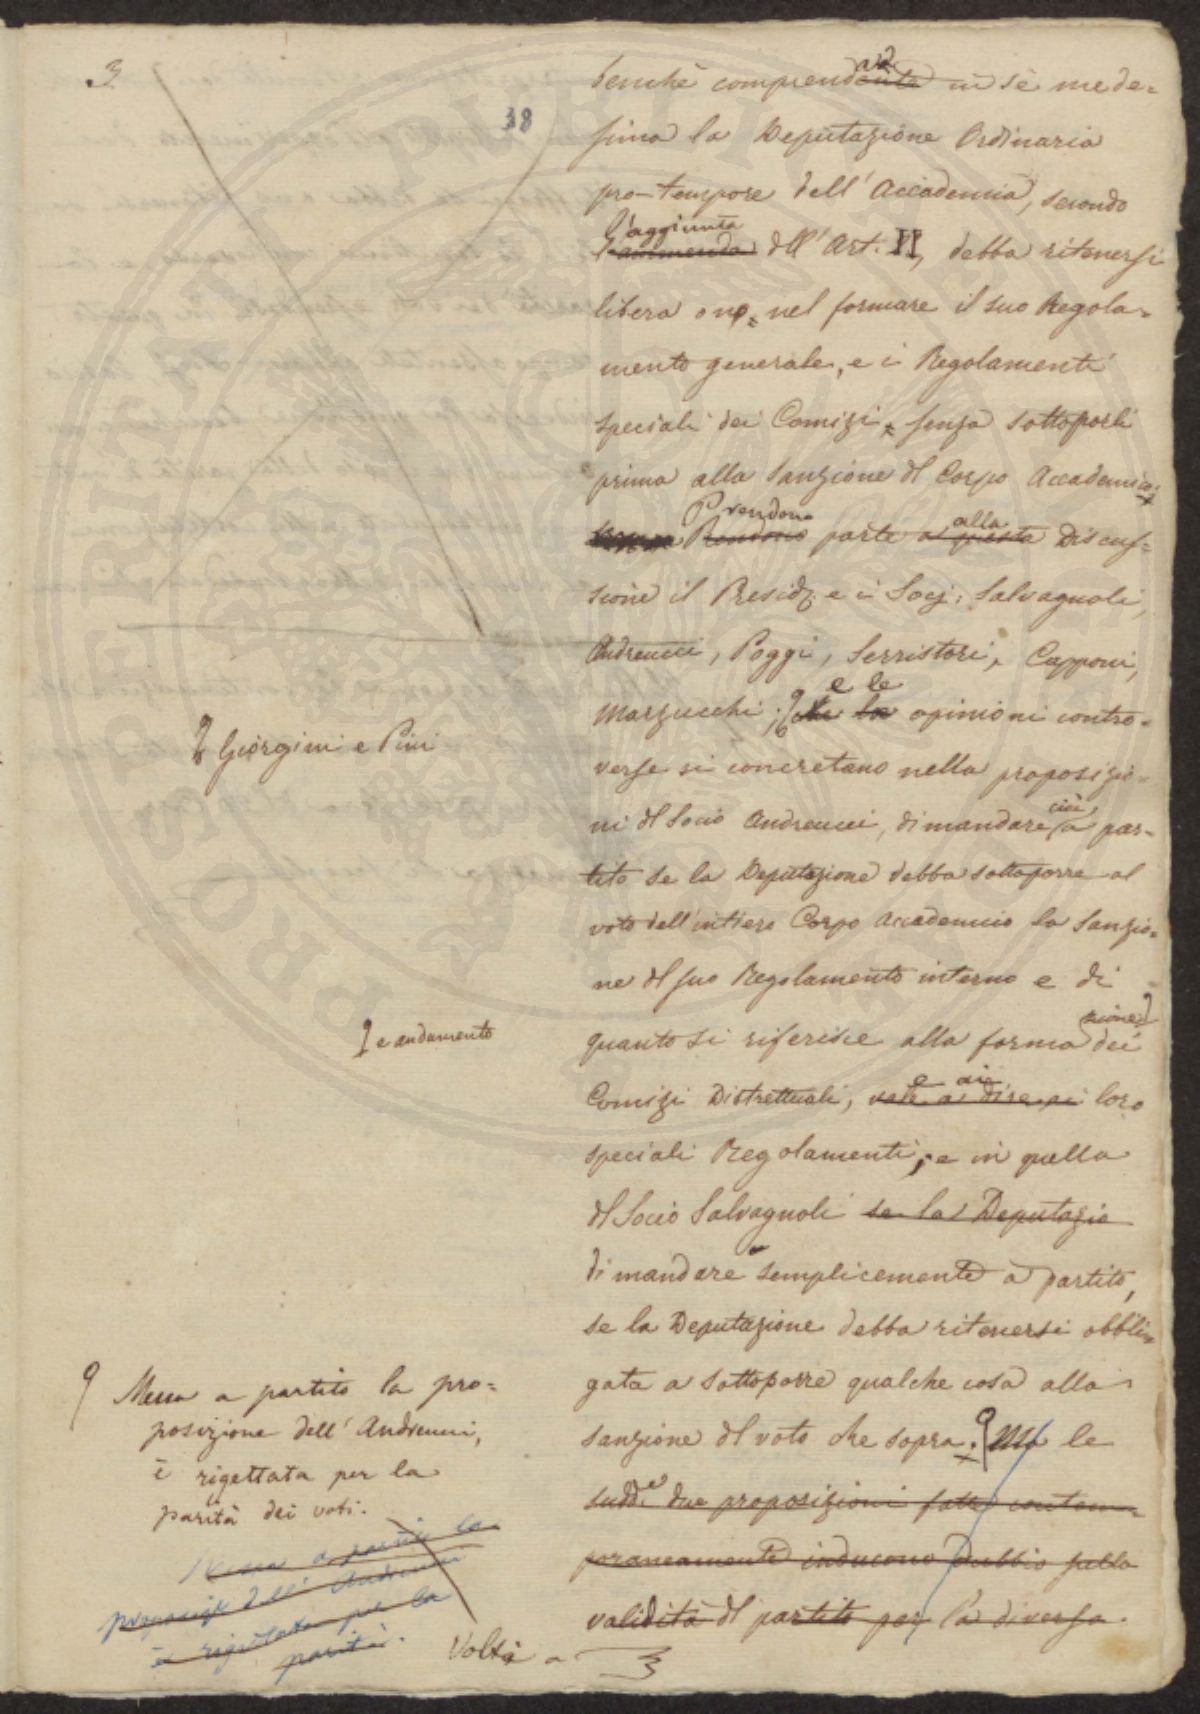 3
38
benchè comprenda
ante in sè mede=
sima la Deputazione Ordinaria
pro-tempore dell'Accademia, secondo
l'aggiunta
l'ammenda dll'Art. II, debba ritenersi
libera o no, nel formare il suo Regola=
mento generale, e i Regolamenti
speciali dei Comizi, senza sottoporli
prima alla Sanzione dl Corpo Accademico.
Prendono alla
Prendono parte a questa Discus=
sione il Presid. e i Socj: Salvagnoli,
Andreucci, Poggi, Serristori, Capponi,
e le
Marzucchi. che le opinioni contro=
Giorgini e Pini
verse si concretano nella proposizio=
ni dl Socio Andreucci, di mandare cioè a par=
tito se la Deputazione debba sottoporre al
voto dell'intiero Corpo Accademico la Sanzio=
ne dl suo Regolamento interno e di
e andamento
quanto si riferisce alla formazione dei
e ai
Comizi Distrettuali, vale a dire ai loro
speciali Regolamenti; e in quella
dl Socio Salvagnoli se la Deputazio
di mandare semplicemente a partito,
se la Deputazione debba ritenersi obbli=
gata a sottoporre qualche cosa alla
sanzione dl voto che sopra. Ma le
sudd.e due proposizioni fatte contem=
poraneamente inducono dubbio sulla
validità dl partito per la diversa
Messa a partito la pro=
posizione dell'Andreucci,
è rigettata per la
parità dei voti.
Messa a partito la
proposiz. dell'Andreucci
è rigettata per la
parità.
Volti